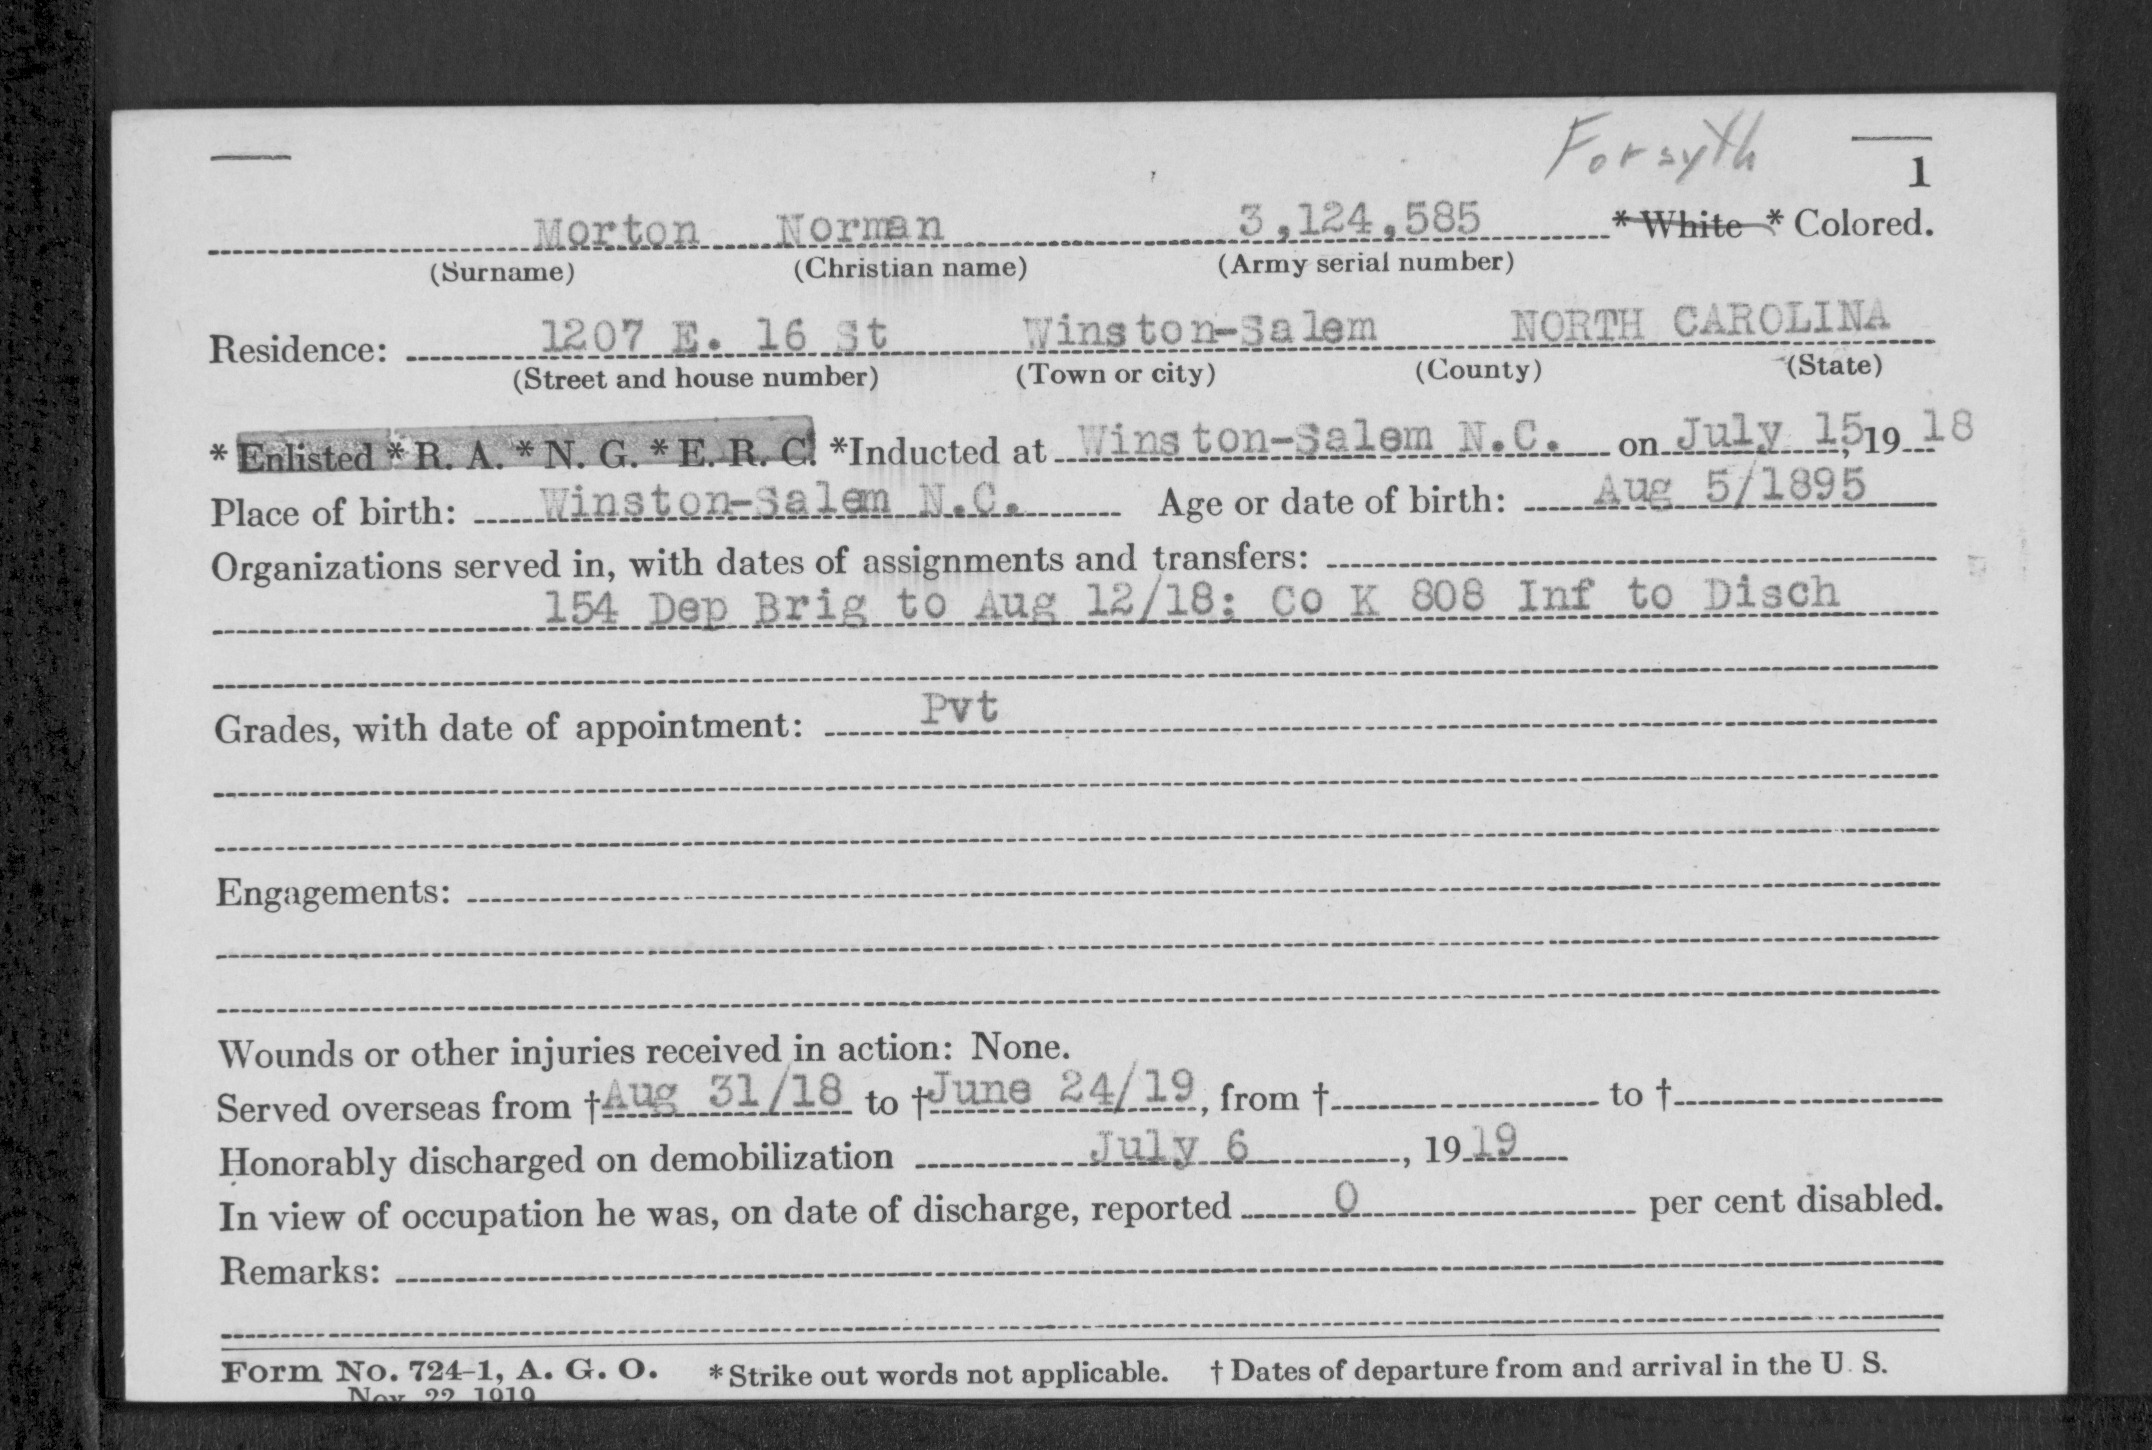 Forsyth
1
Morton Norman 3,124,585 * White * Colored.
(Surname) (Christian name) (Army serial number)
Residence: 1207 E. 16 St Winston-Salem NORTH CAROLINA
(Street and house number) (Town or city) (County) (State)
* Enlisted * R. A. * N. G. * E. R. C. * Inducted at Winston-Salem N.C. on July 15, 19 18
Place of birth: Winston-Salem N.C. Age or date of birth: Aug 5/1895
Organizations served in, with dates of assignments and transfers:
154 Dep Brig to Aug 12/18: Co K 808 Inf to Disch
Grades, with date of appointment: Pvt
Engagements:
Wounds or other injuries received in action: None.
Served overseas from †Aug 31/18 to †June 24/19, from † to †
Honorably discharged on demobilization July 6, 1919
In view of occupation he was, on date of discharge, reported 0 per cent disabled.
Remarks:
Form No. 724-1, A. G. O. * Strike out words not applicable. † Dates of departure from and arrival in the U. S.
Nov. 22, 1919